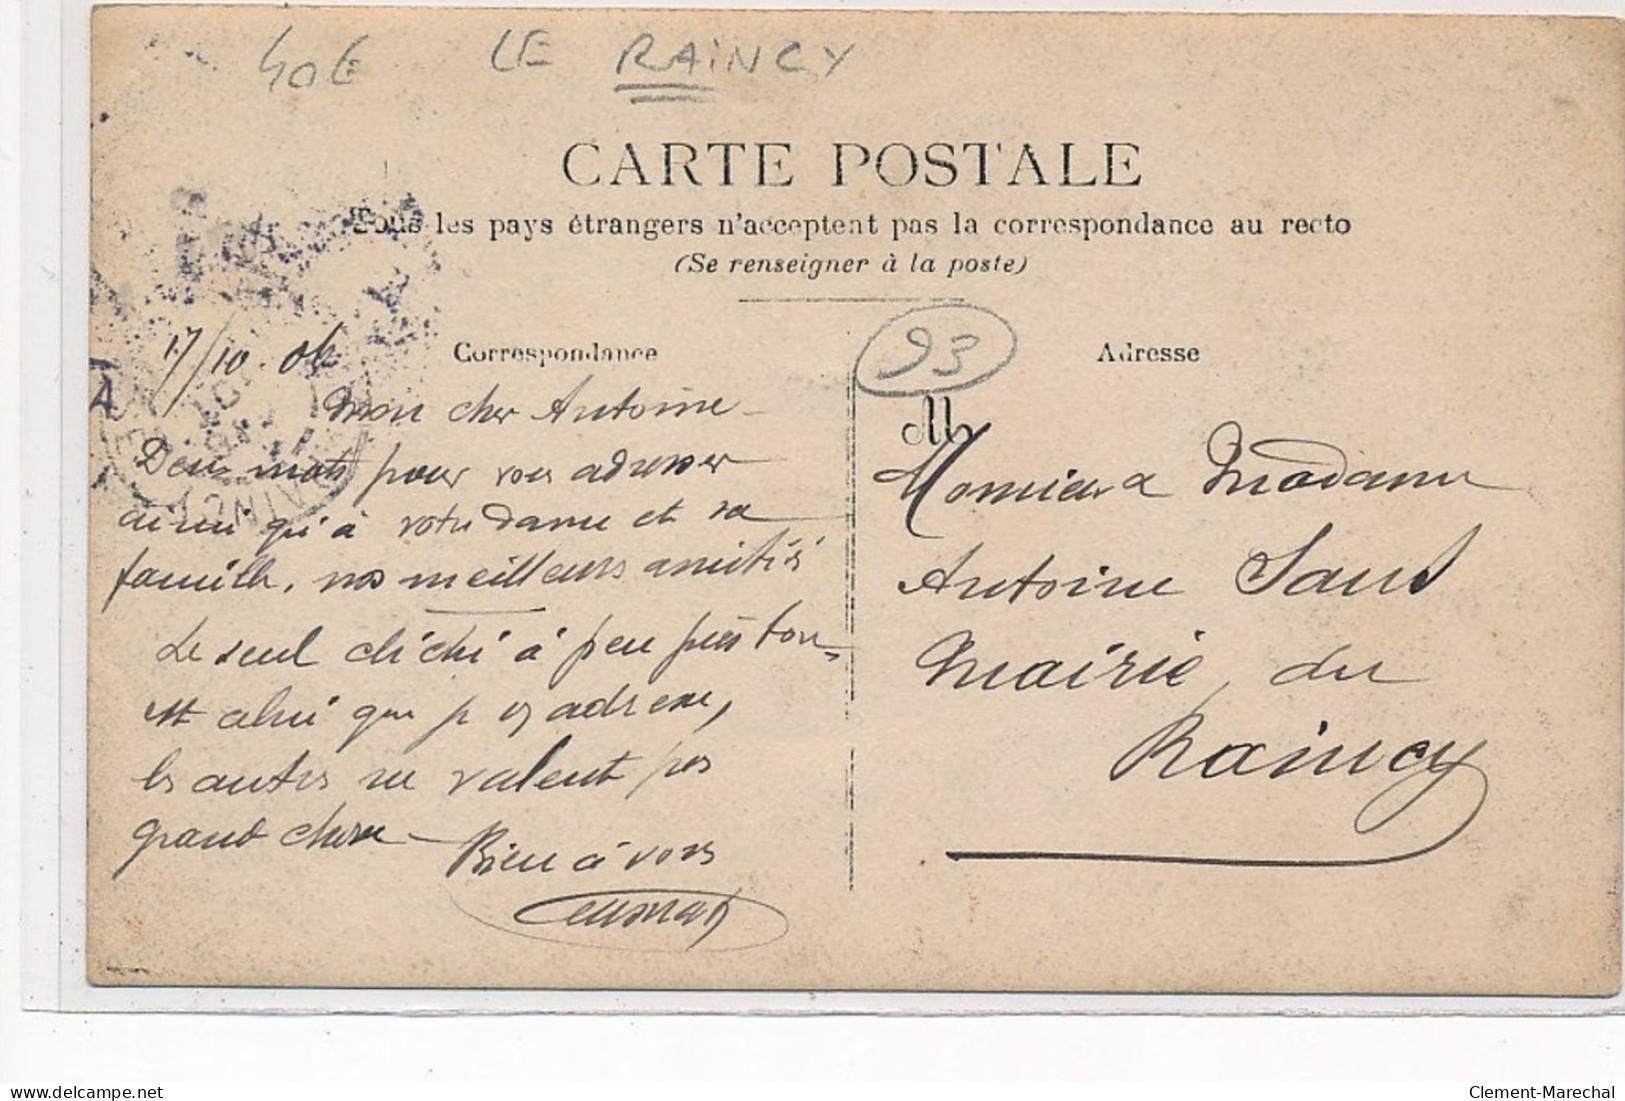 40€ LE RAINCY
CARTE POSTALE
Tous les pays étrangers n'acceptent pas la correspondance au recto
(Se renseigner à la poste)
93
17/10.06 Correspondance
Mon cher Antoine
Deux mots pour vous adresser
ainsi qu'à votre dame et sa
famille, nos meilleurs amitiés
Le seul cliché à peu près bon
est celui que j'y adresse,
les autres ne valent pas
grand chose –
Bien à vous
Adresse
M
Monsieur & Madame
Antoine
Mairie du
Raincy
delcampe.net
Clement-Marechal